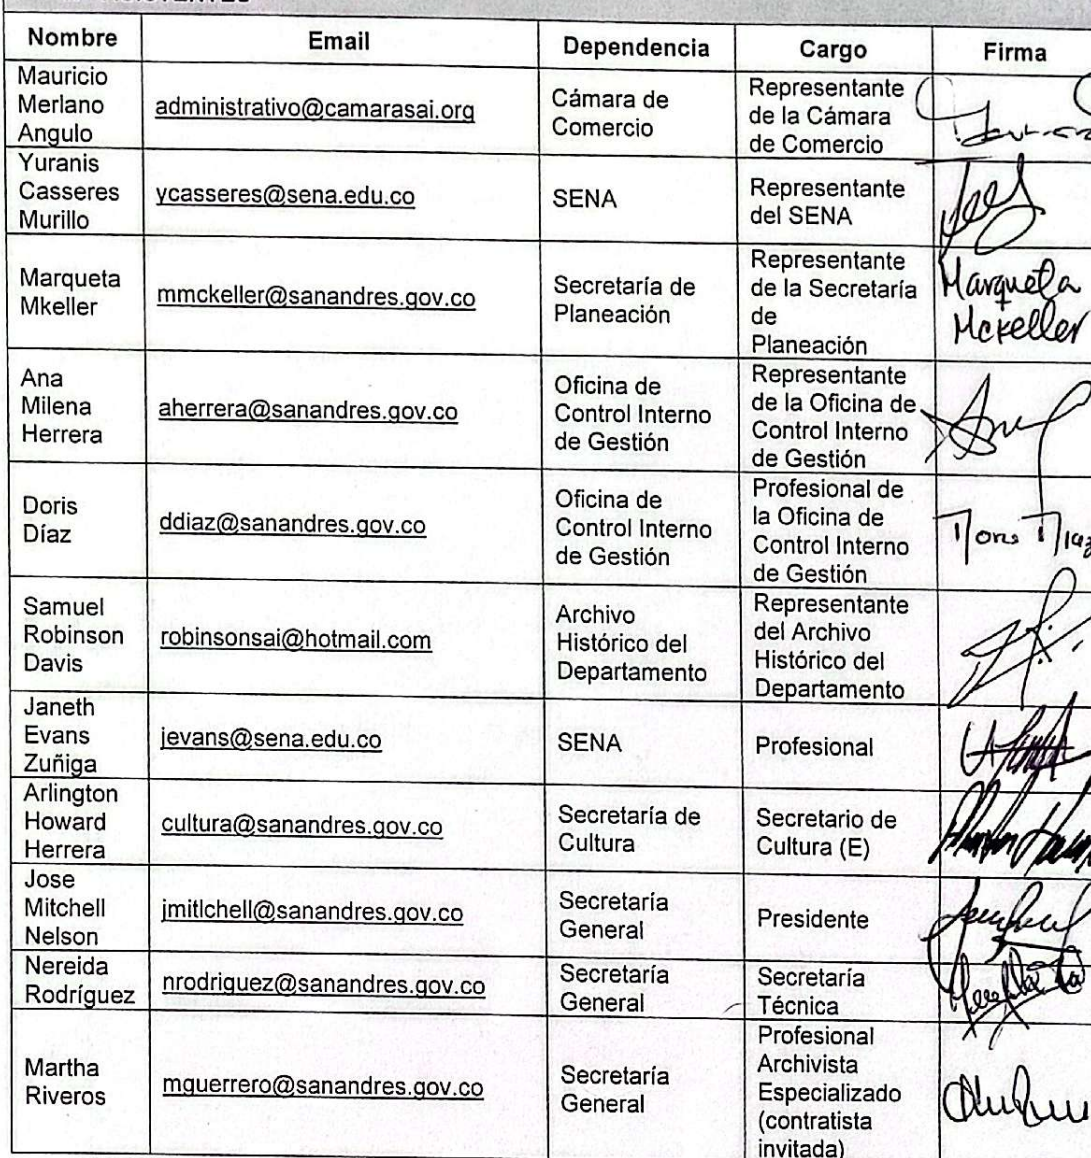 Nombre Email Dependencia Cargo Firma
Mauricio
Merlano
Angulo
administrativo@camarasai.org
Cámara de
Comercio
Representante
de la Cámara
de Comercio
Yuranis
Casseres
Murillo
ycasseres@sena.edu.co
SENA
Representante
del SENA
Marqueta
Mkeller
mmckeller@sanandres.gov.co
Secretaría de
Planeación
Representante
de la Secretaría
de
Planeación
Marqueta
Mckeller
Ana
Milena
Herrera
aherrera@sanandres.gov.co
Oficina de
Control Interno
de Gestión
Representante
de la Oficina de
Control Interno
de Gestión
Doris
Díaz
ddiaz@sanandres.gov.co
Oficina de
Control Interno
de Gestión
Profesional de
la Oficina de
Control Interno
de Gestión
Samuel
Robinson
Davis
robinsonsai@hotmail.com
Archivo
Histórico del
Departamento
Representante
del Archivo
Histórico del
Departamento
Janeth
Evans
Zuñiga
jevans@sena.edu.co
SENA
Profesional
Arlington
Howard
Herrera
cultura@sanandres.gov.co
Secretaría de
Cultura
Secretario de
Cultura (E)
Jose
Mitchell
Nelson
jmitlchell@sanandres.gov.co
Secretaría
General
Presidente
Nereida
Rodríguez
nrodriguez@sanandres.gov.co
Secretaría
General
Secretaría
Técnica
Martha
Riveros
mguerrero@sanandres.gov.co
Secretaría
General
Profesional
Archivista
Especializado
(contratista
invitada)